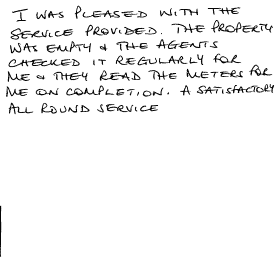 I WAS PLEASED WITH THE
SERVICE PROVIDED. THE PROPERTY
WAS EMPTY & THE AGENTS
CHECKED IT REGULARLY FOR
ME & THEY READ THE METERS FOR
ME ON COMPLETION. A SATISFACTORY
ALL ROUND SERVICE